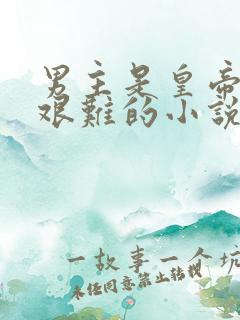 男主是皇帝
艰難的小説
一故事一个坑
未经同意禁止转载